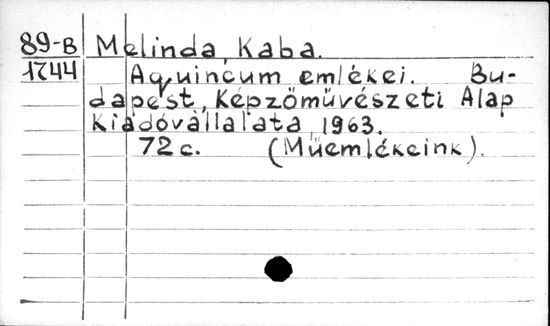 89-B Melinda, Kaba.
1744 Aquincum emlékei. Bu-
dapest, Képzőművészeti Alap
Kiadóvállalata, 1963.
72 c. (Műemlékeink).